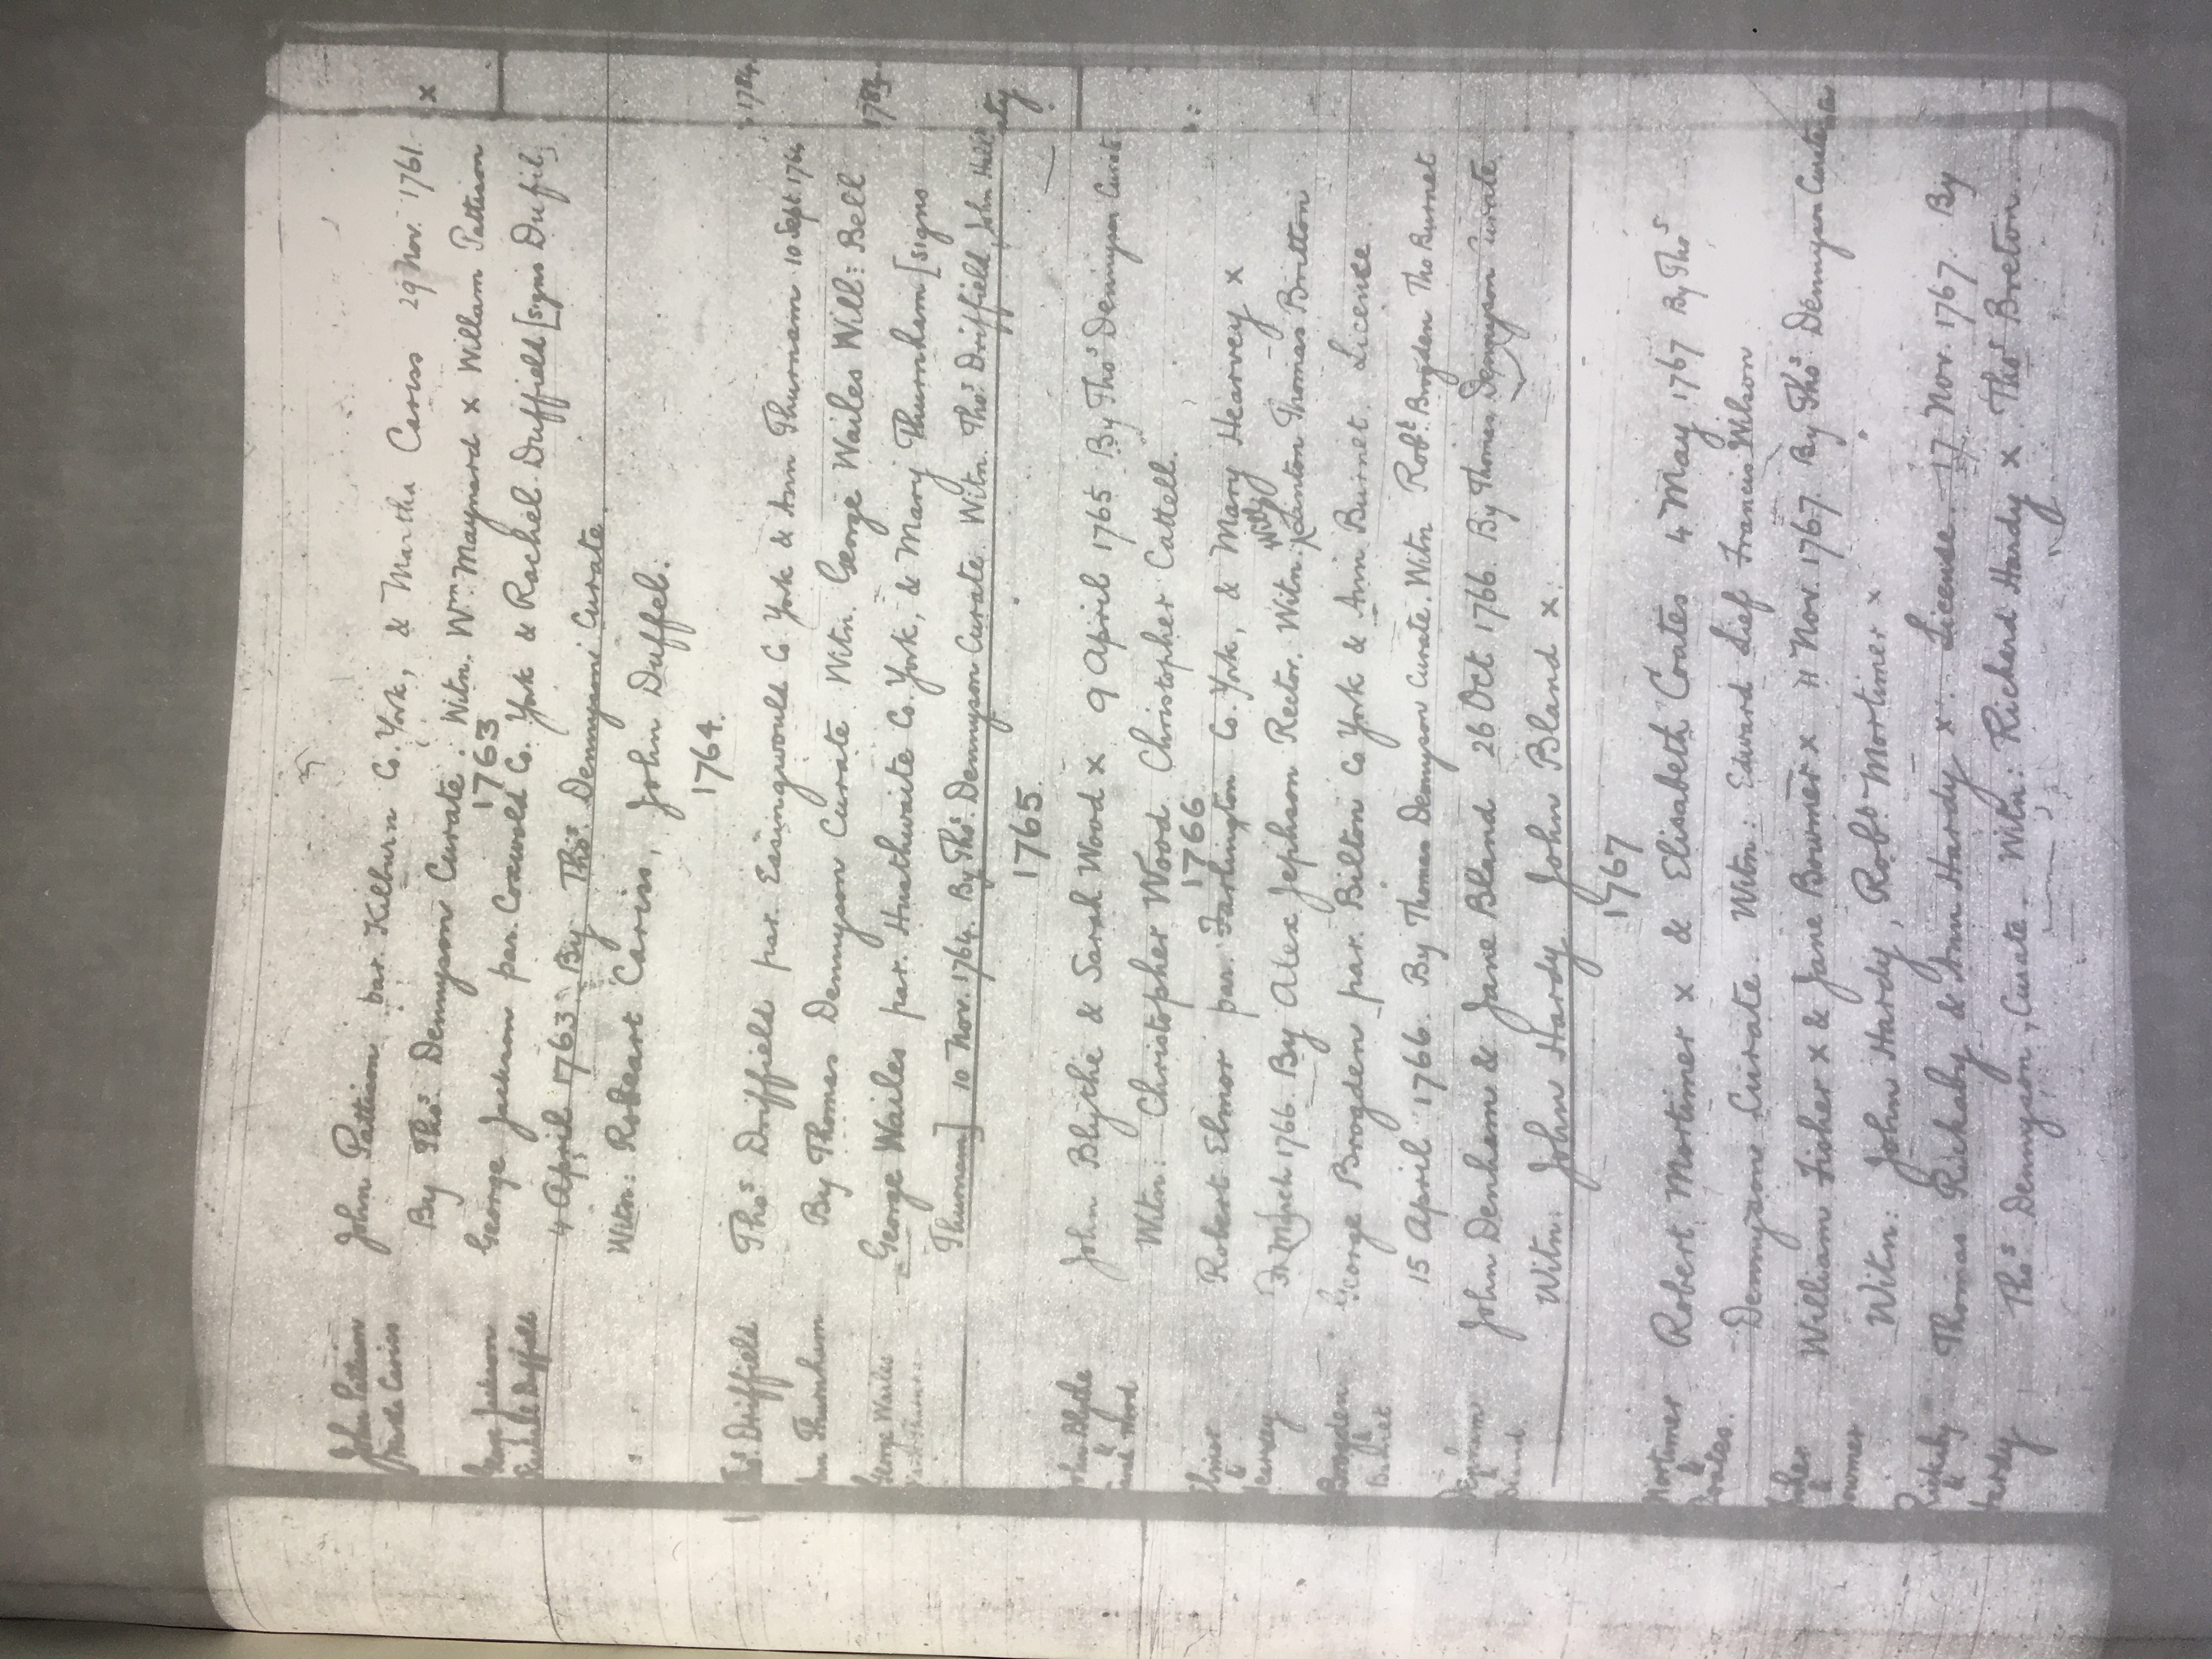 John Pattison par. Kilburn Co. York, & Martha Cariss 29 Nov. 1761.
John Pattison
Martha Cariss
By Thos. Dennyson Curate: Witn. Wm. Maynard x William Pattison x
1763
George Jackson par. Coxwold Co. York & Rachel Duffield [signs Dufil]
George Jackson
Rachel Duffield
4 April 1763 By Thos. Dennyson Curate.
Witn: Robeart Cariss, John Duffel:
1764.
Thos Driffield par. Easingwould Co York & Ann Thurnam 10 Sept. 1764
Thos. Driffield
Ann Thurnham
By Thomas Dennyson Curate Witn. George Wailes Will: Bell
George Wailes par. Husthwaite Co. York, & Mary Thurnham [signs
George Wailes
Thurnam] 10 Nov. 1764. By Thos. Dennyson Curate. Witn. Thos. Driffield, John Hall
1765.
John Blythe & Sarah Wood x 9 April 1765 By Thos Dennyson Curate
John Blythe
&
Sarah Wood
Witn: Christopher Wood Christopher Cattell.
1766
Robert Elmor par. Farlington Co. York, & Mary Hearvey x
&
Hearvey
March 1766. By Alex Jephson Rector. Witn: Linton Thomas Britton
George Brogden par. Bilton Co York & Ann Burnet. Licence
Brogden
&
15 April 1766. By Thomas Dennyson Curate. Witn Robt. Brogden Tho Burnet
John Denham & Jane Bland 26 Oct 1766. By Thomas Dennyson Curate
&
Bland
Witn: John Hardy John Bland x.
1767
Robert Mortimer x & Elisabeth Coates 4 May 1767 By Thos
Mortimer
&
Coates.
Dennysone Curate. Witn: Edward Lief Francis Wilson
William Fisher x & Jane Bowmer x 11 Nov. 1767. By Thos. Dennyson Curate
&
Bowmer
Witn: John Hardy, Robt. Mortimer x
Thomas Rickaby & Ann Hardy x. License. 17 Nov. 1767. By
Rickaby
&
Hardy
Thos. Dennyson, Curate. Witn: Richard Hardy x Thos Breton.